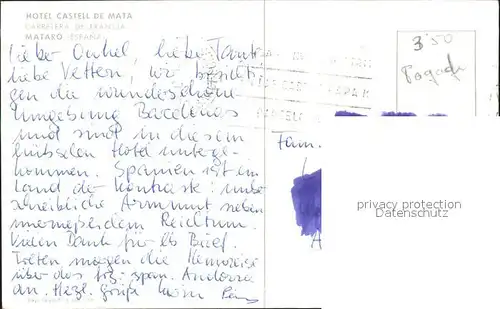 HOTEL CASTELL DE MATA
CARRETERA DE FRANCIA
MATARÓ (ESPAÑA)
Lieber Onkel, liebe Tante
liebe Vettern, wir besichti-
gen die wunderschöne
Umgebung Barcelonas
und sind in diesem
hübschen Hotel unterge-
kommen. Spanien ist ein
Land der Kontraste: unbe-
schreibliche Armmut neben
unermeßlichem Reichtum.
Vielen Dank für Lb Brief.
Treten morgen die Heimreise
über das frz.-span. Andorra
an. Herzl. Grüße
3'50
Fam.
privacy protection
Datenschutz